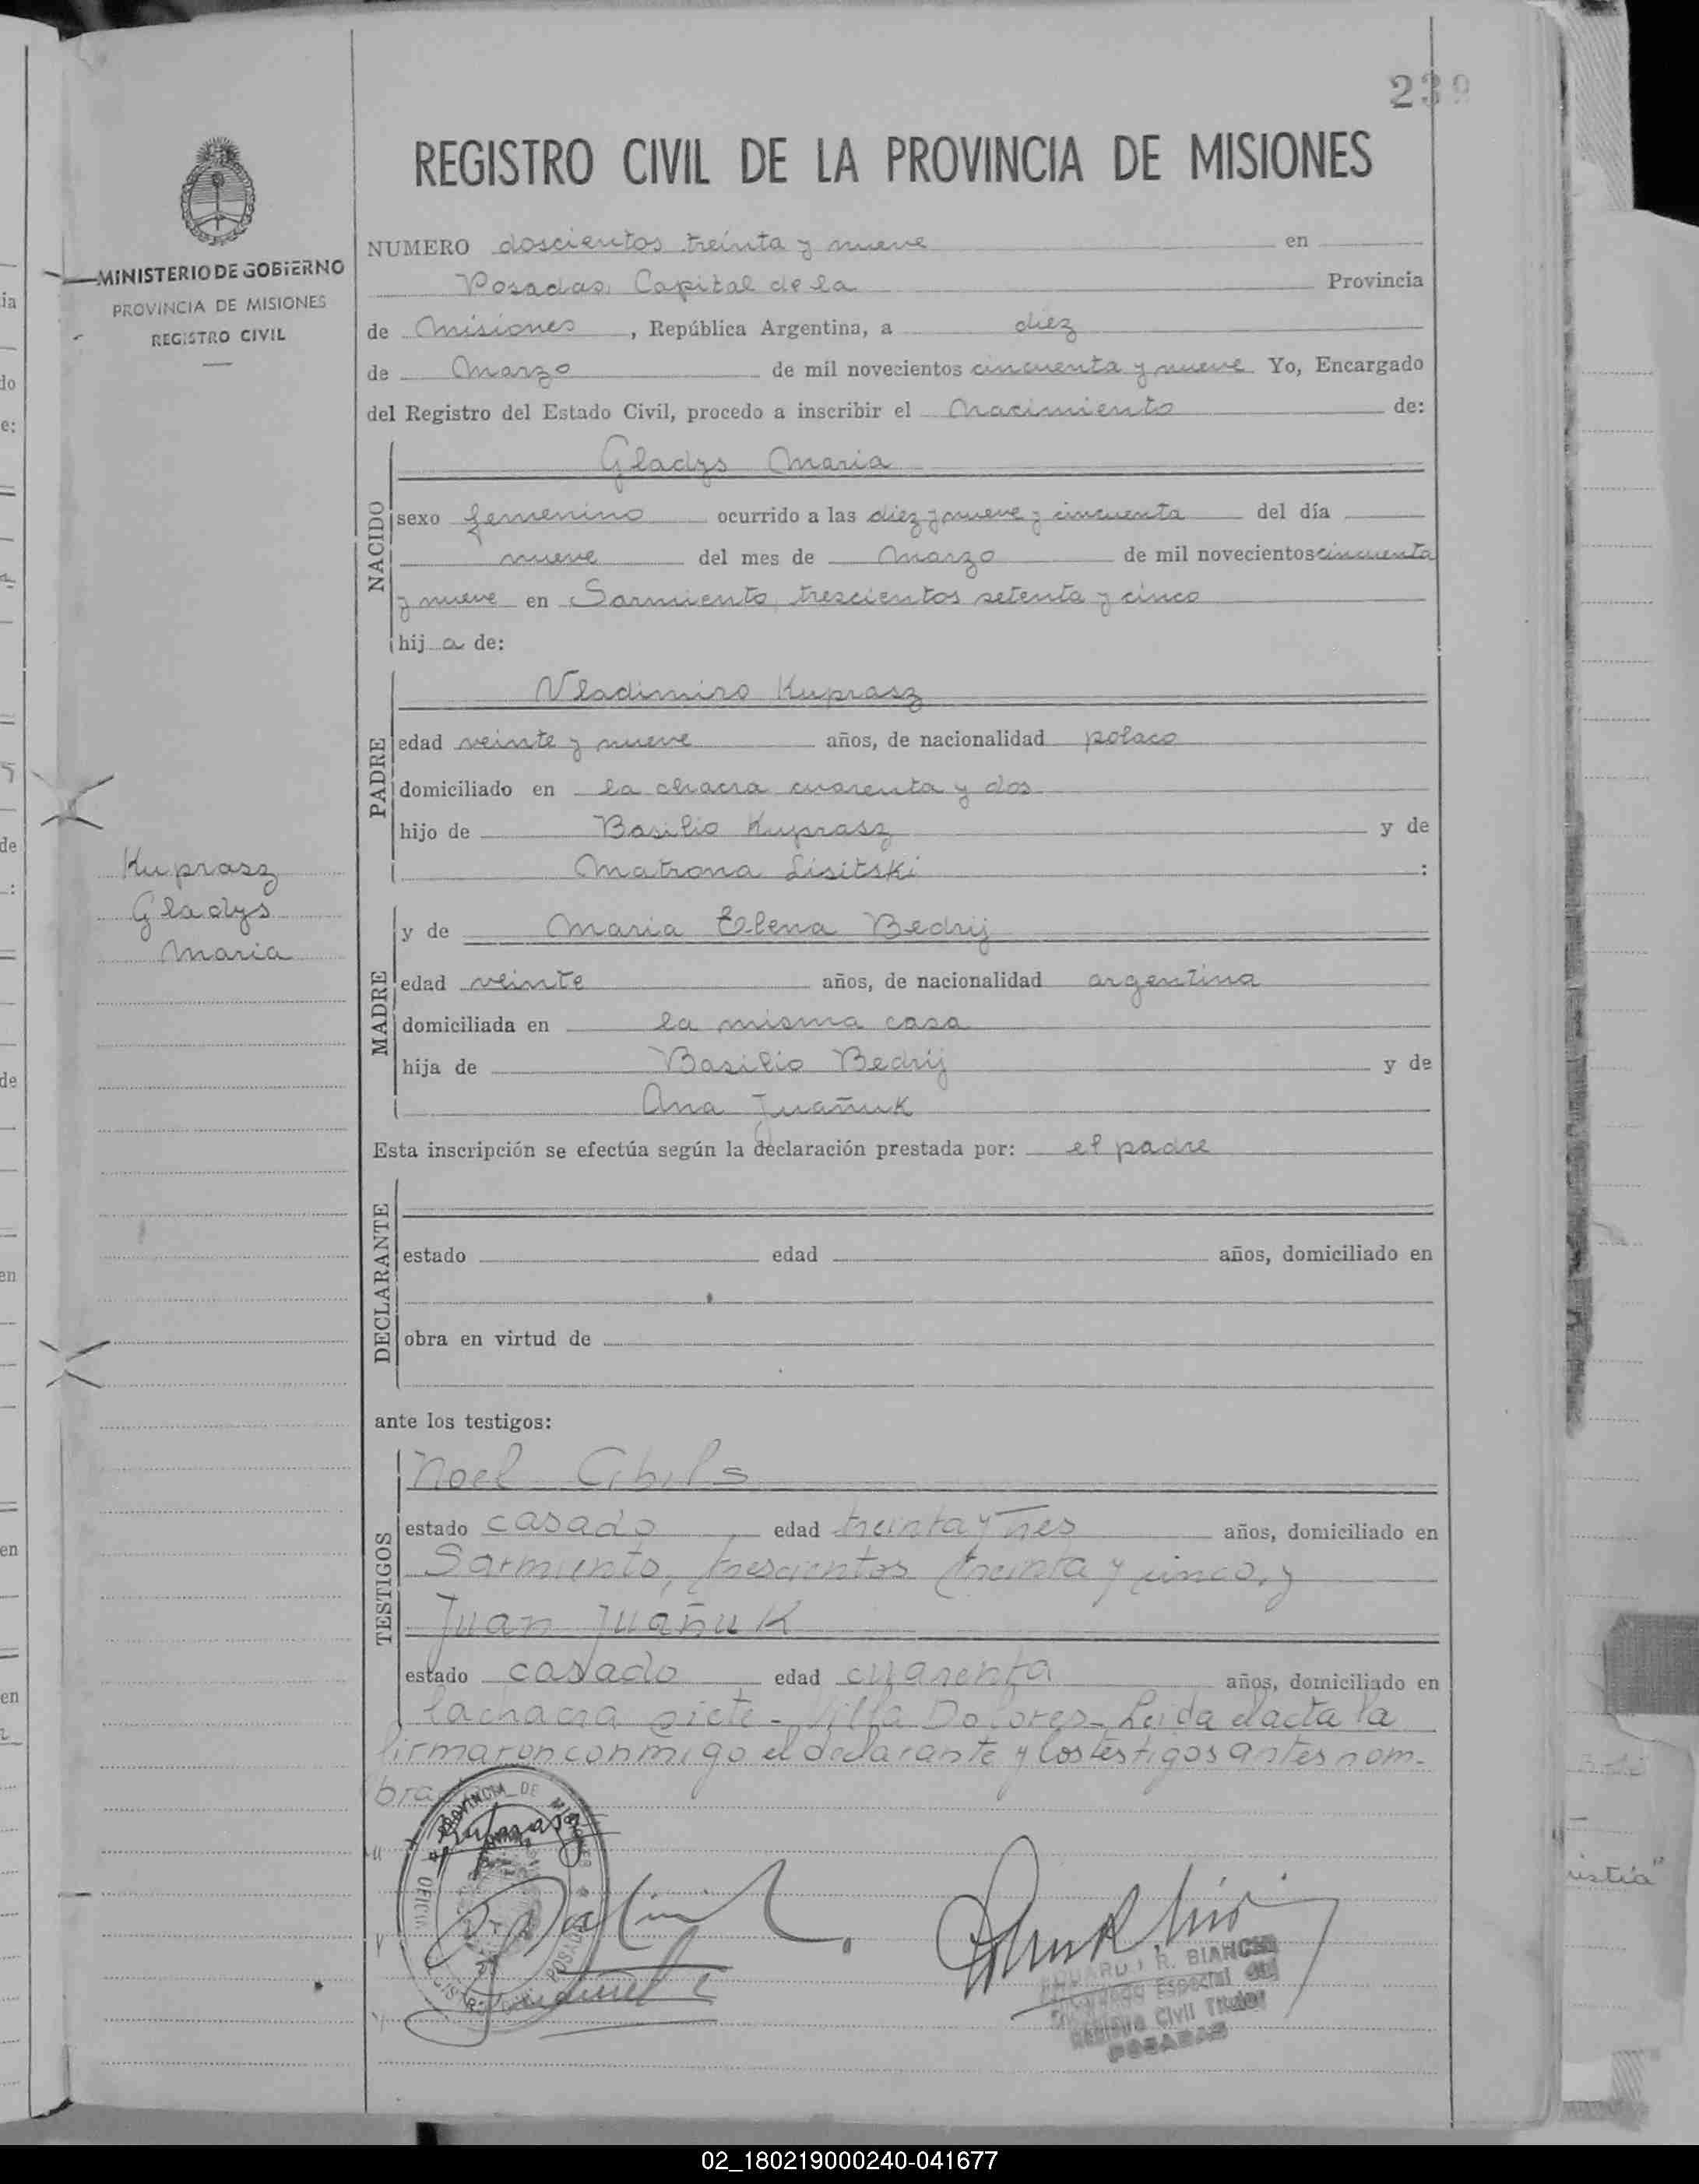 239
REGISTRO CIVIL DE LA PROVINCIA DE MISIONES
MINISTERIO DE GOBIERNO
PROVINCIA DE MISIONES
REGISTRO CIVIL
NUMERO doscientos treinta y nueve en
Posadas, Capital de la Provincia
de Misiones, República Argentina, a diez
de Marzo de mil novecientos cincuenta y nueve Yo, Encargado
del Registro del Estado Civil, procedo a inscribir el Nacimiento de:
NACIDO
Gladys Maria
sexo femenino ocurrido a las diez y nueve y cincuenta del día
nueve del mes de Marzo de mil novecientos cincuenta
y nueve en Sarmiento, trescientos setenta y cinco
hij a de:
PADRE
Vladimiro Kuprasz
edad veinte y nueve años, de nacionalidad polaco
domiciliado en la chacra cuarenta y dos
hijo de Basilio Kuprasz y de
Matrona Lisitski :
Kuprasz
Gladys
Maria
MADRE
y de Maria Elena Bedrij
edad veinte años, de nacionalidad argentina
domiciliada en la misma casa
hija de Basilio Bedrij y de
Ana Juañuk
Esta inscripción se efectúa según la declaración prestada por: el padre
DECLARANTE
estado edad años, domiciliado en
obra en virtud de
ante los testigos:
TESTIGOS
Noel Cibils
estado casado edad treinta y tres años, domiciliado en
Sarmiento, trescientos treinta y cinco, y
Juan Juañuk
estado casado edad cuarenta años, domiciliado en
la chacra siete - Villa Dolores - Leida el acta la
firmaron conmigo el declarante y los testigos antes nom-
bra
PROVINCIA DE MISIONES
POSADAS
EDUARDO R. BIANCHI
Encargado Especial del
Registro Civil Titular
POSADAS
02_180219000240-041677